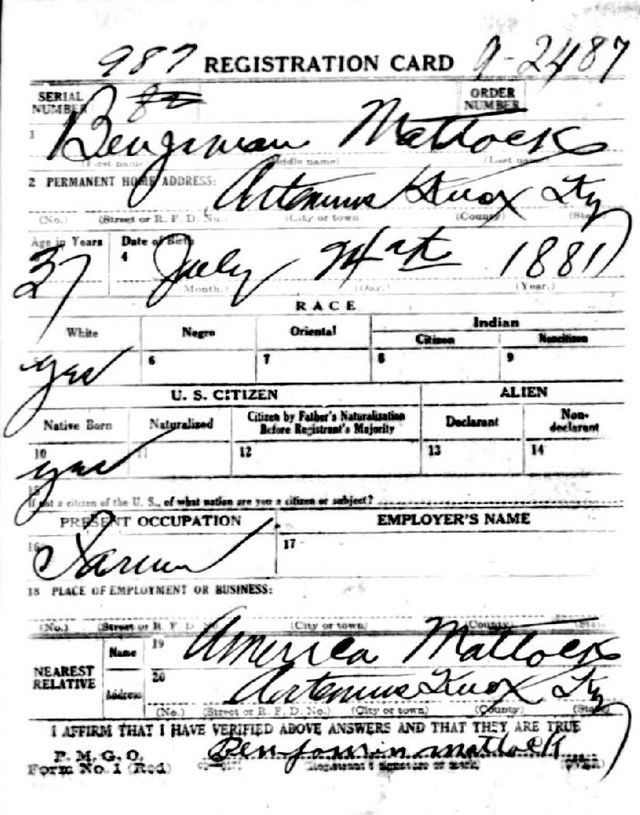 987 REGISTRATION CARD A-2487
SERIAL NUMBER ORDER NUMBER
1 Bengiman Matlock
(First name) (Middle name) (Last name)
2 PERMANENT HOME ADDRESS: Artemus Knox Ky
(No.) (Street or R. F. D. No.) (City or town) (County) (State)
Age in Years Date of Birth
37 4 July 24th 1881
(Month.) (Day.) (Year.)
RACE
White Negro Oriental Indian
Citizen Noncitizen
yes 6 7 8 9
U. S. CITIZEN ALIEN
Native Born Naturalized Citizen by Father's Naturalization Before Registrant's Majority Declarant Non-declarant
10 11 12 13 14
yes
15
If not a citizen of the U. S., of what nation are you a citizen or subject?
PRESENT OCCUPATION EMPLOYER'S NAME
16 Farmer 17
18 PLACE OF EMPLOYMENT OR BUSINESS:
(No.) (Street or R. F. D. No.) (City or town) (County) (State)
NEAREST RELATIVE Name 19 America Matlock
Address 20 Artemus Knox Ky
(No.) (Street or R. F. D. No.) (City or town) (County) (State)
I AFFIRM THAT I HAVE VERIFIED ABOVE ANSWERS AND THAT THEY ARE TRUE
P. M. G. O.
Form No. 1 (Red) Benjamin matlock
(Registrant's signature or mark) (OVER)